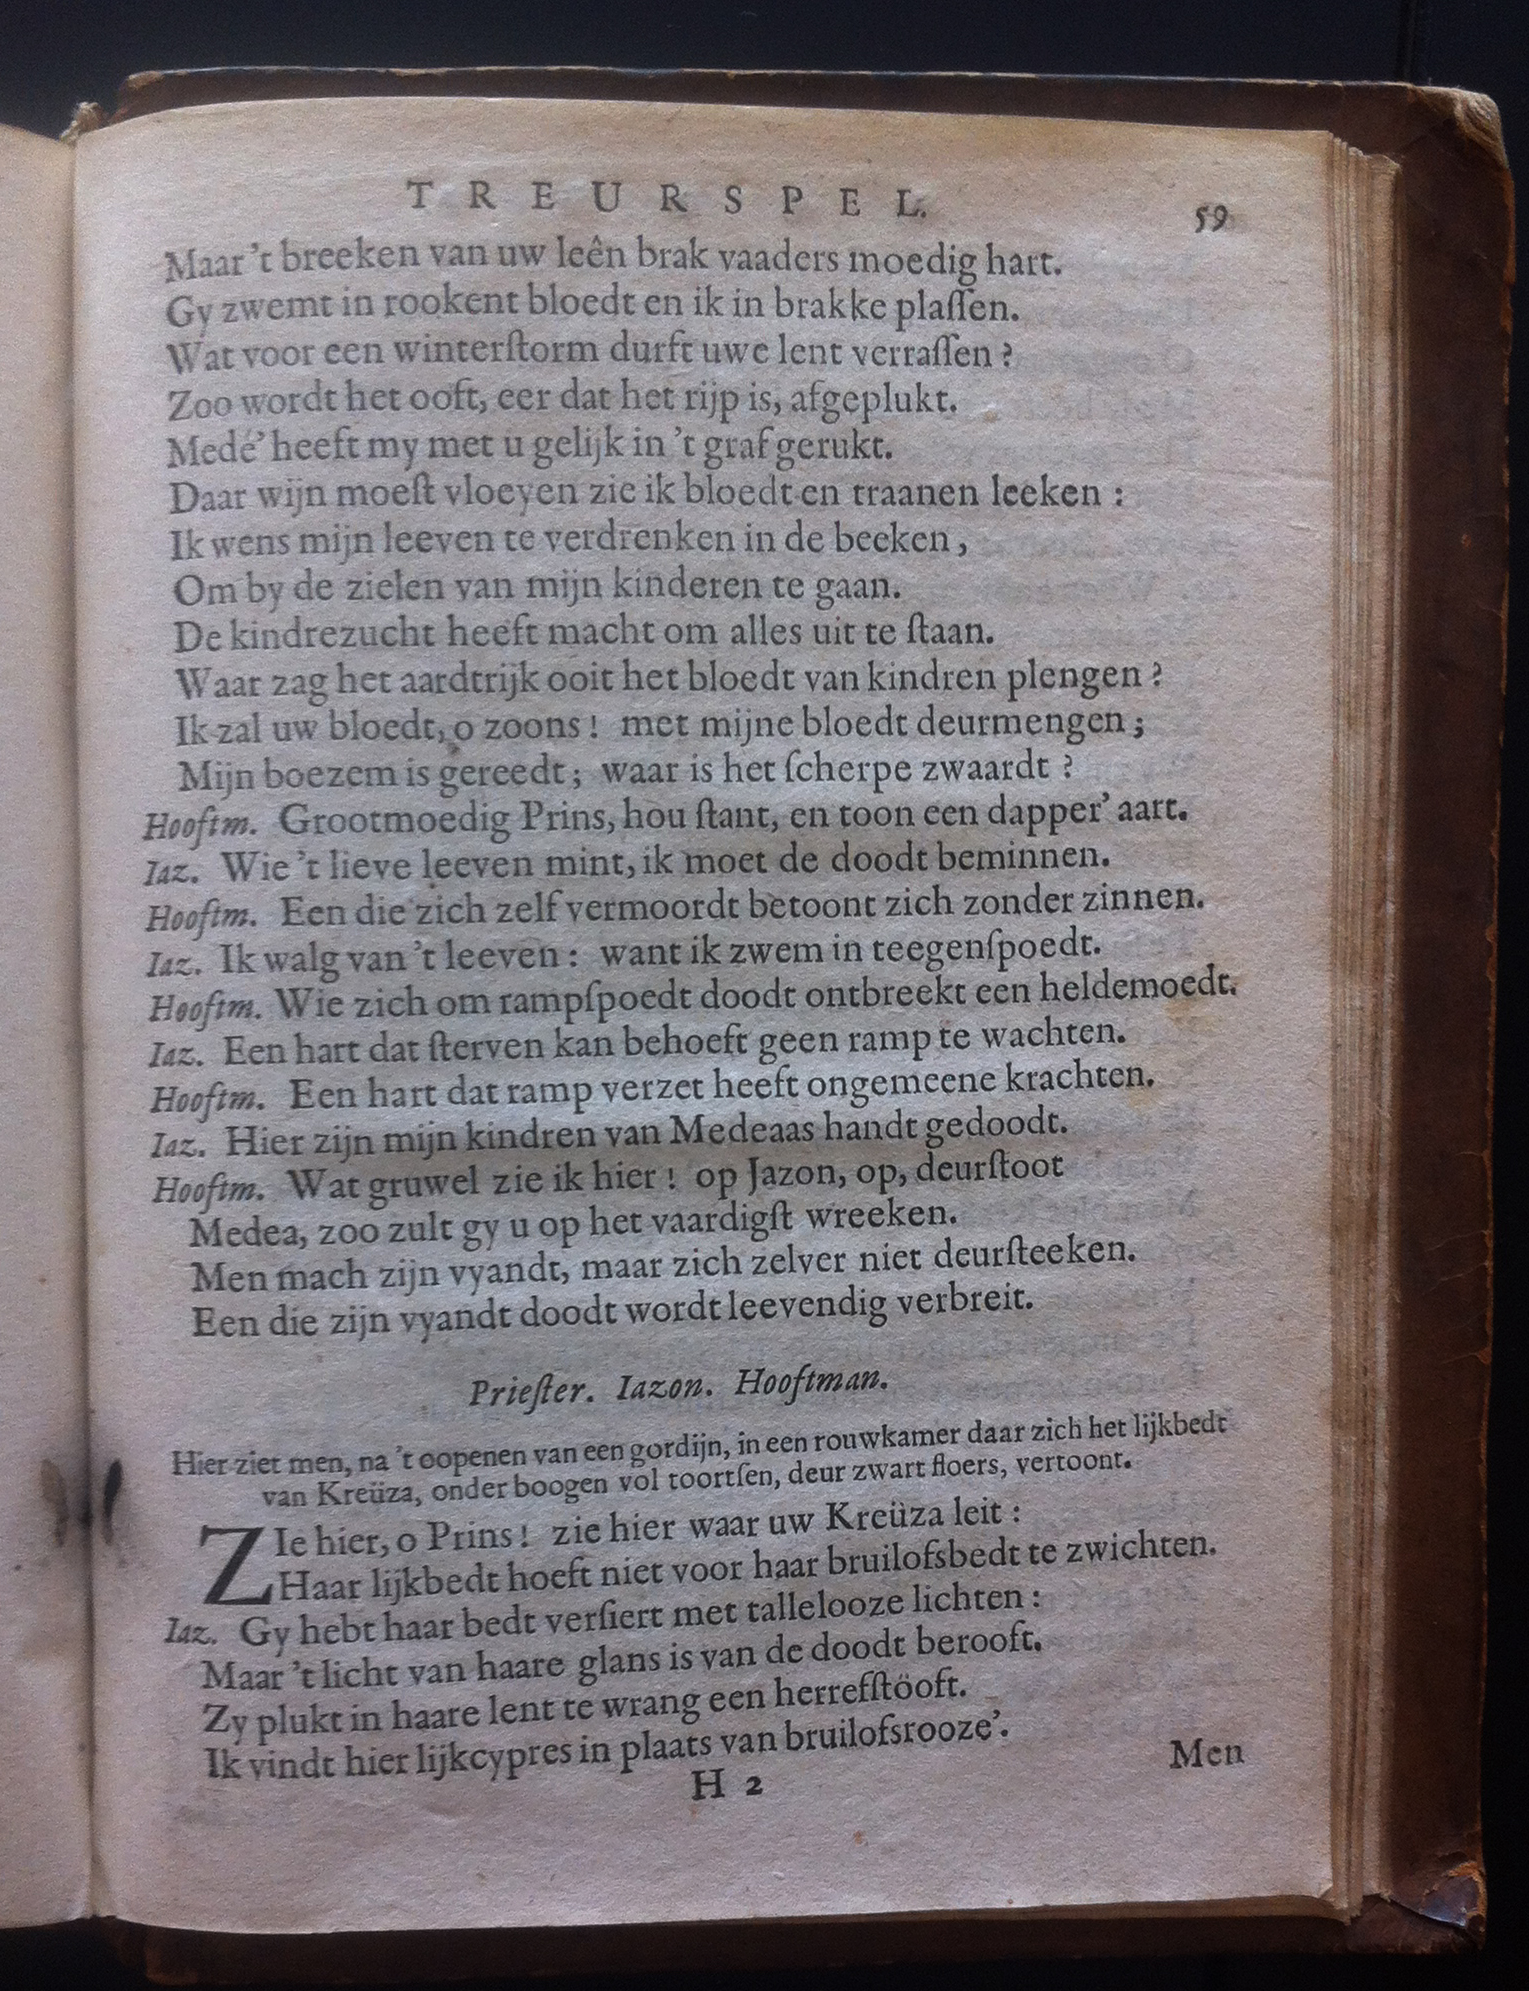 TREURSPEL. 59
Maar 't breeken van uw leên brak vaaders moedig hart.
Gy zwemt in rookent bloedt en ik in brakke plaſſen.
Wat voor een winterſtorm durft uwe lent verraſſen?
Zoo wordt het ooft, eer dat het rijp is, afgeplukt.
Medé' heeft my met u gelijk in 't graf gerukt.
Daar wijn moeſt vloeyen zie ik bloedt en traanen leeken:
Ik wens mijn leeven te verdrenken in de beeken,
Om by de zielen van mijn kinderen te gaan.
De kindrezucht heeft macht om alles uit te ſtaan.
Waar zag het aardtrijk ooit het bloedt van kindren plengen?
Ik zal uw bloedt, o zoons! met mijne bloedt deurmengen;
Mijn boezem is gereedt; waar is het ſcherpe zwaardt?
Hooftm. Grootmoedig Prins, hou ſtant, en toon een dapper' aart.
Iaz. Wie 't lieve leeven mint, ik moet de doodt beminnen.
Hooftm. Een die zich zelf vermoordt betoont zich zonder zinnen.
Iaz. Ik walg van 't leeven: want ik zwem in teegenſpoedt.
Hooftm. Wie zich om rampſpoedt doodt ontbreekt een heldemoedt.
Iaz. Een hart dat ſterven kan behoeft geen ramp te wachten.
Hooftm. Een hart dat ramp verzet heeft ongemeene krachten.
Iaz. Hier zijn mijn kindren van Medeaas handt gedoodt.
Hooftm. Wat gruwel zie ik hier! op Jazon, op, deurſtoot
Medea, zoo zult gy u op het vaardigſt wreeken.
Men mach zijn vyandt, maar zich zelver niet deurſteeken.
Een die zijn vyandt doodt wordt leevendig verbreit.
Prieſter. Iazon. Hooftman.
Hier ziet men, na 't oopenen van een gordijn, in een rouwkamer daar zich het lijkbedt
van Kreüza, onder boogen vol toortſen, deur zwart floers, vertoont.
ZIe hier, o Prins! zie hier waar uw Kreüza leit:
Haar lijkbedt hoeft niet voor haar bruilofsbedt te zwichten.
Iaz. Gy hebt haar bedt verſiert met tallelooze lichten:
Maar 't licht van haare glans is van de doodt berooft.
Zy plukt in haare lent te wrang een herrefſtöoft.
Ik vindt hier lijkcypres in plaats van bruilofsrooze'.
H 2 Men